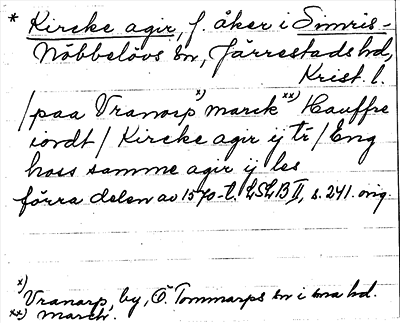 * Kircke agir, f. åker i Simris-
Nöbbelövs sn, Järrestads hd,
Krist. l.
/paa Vranorp x) marck xx) Hauffre
iordt / Kircke agir ij tr / Eng
hoss samme agir ij les
förra delen av 1570-t. LSLB II, s. 241. orig.
x)
Vranarp, by, Ö. Tommarps sn i sma hd.
xx) march.